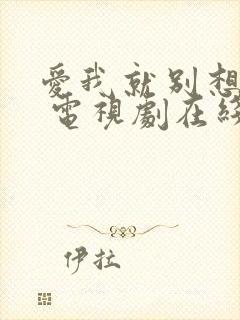 愛我就别想
電視劇在
伊拉